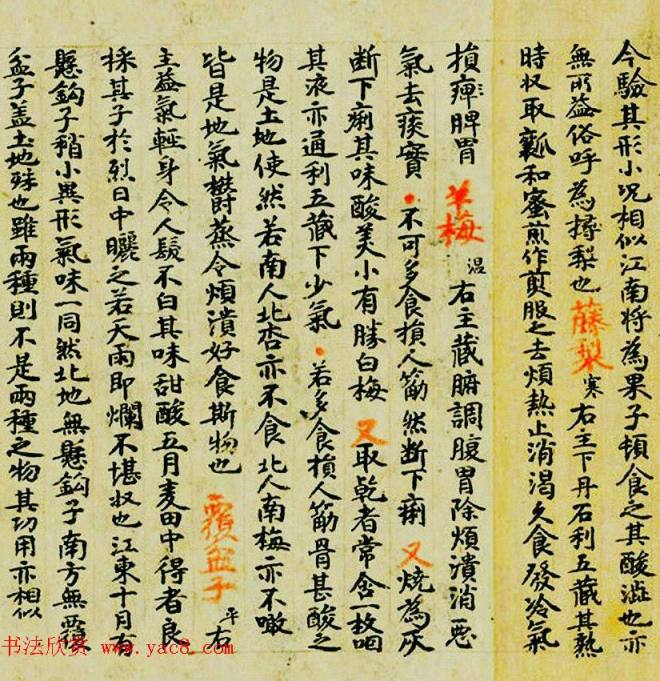 今驗其形小况相似江南将為果子頓食之其酸澁也亦
無所益俗呼為㯽梨也藤梨寒右主下丹石利五藏其熟
時収取瓤和蜜煎作煎服之去煩熱止消渴久食發冷氣
損痺脾胃羊梅温右主藏腑調腹胃除煩潰消惡
氣去痰實·不可多食損人筋然断下痢又燒為灰
断下痢其味酸美小有勝白梅又取乾者常含一枚咽
其液亦通利五藏下少氣·若多食損人筋骨甚酸之
物是土地使然若南人北杏亦不食北人南梅亦不噉
皆是地氣欝蒸令煩潰好食斯物也覆盆子平右
主益氣輕身令人鬚不白其味甜酸五月麦田中得者良
採其子於烈日中曬之若天雨即爛不堪収也江東十月有
懸鈎子稍小異形氣味一同然北地無懸鈎子南方無覆
盆子盖土地殊也雖兩種則不是兩種之物其功用亦相似
书法欣赏 www.yac8.com